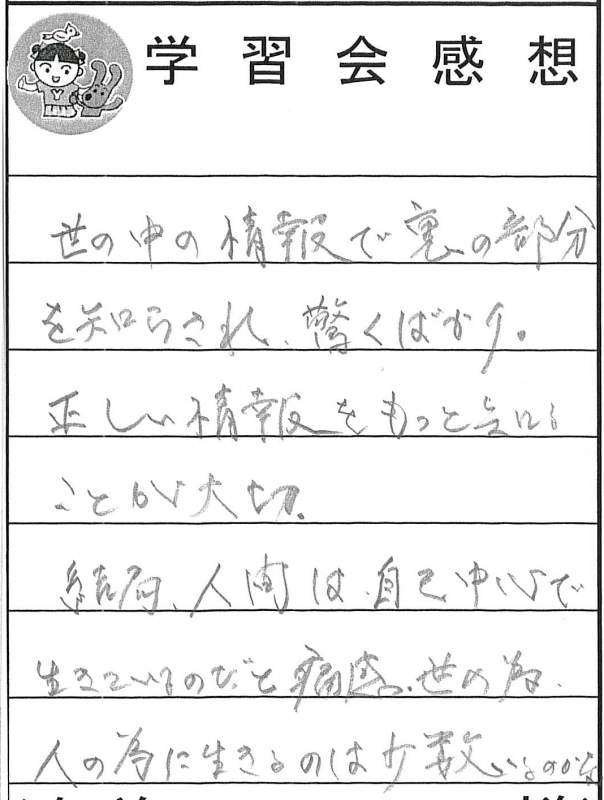 学習会感想
世の中の情報で裏の部分
を知らされ、驚くばかり。
正しい情報をもっと知る
ことが大切。
結局、人間は、自己中心で
生きているのだと痛感。世の為、
人の為に生きるのは少数いるのかな